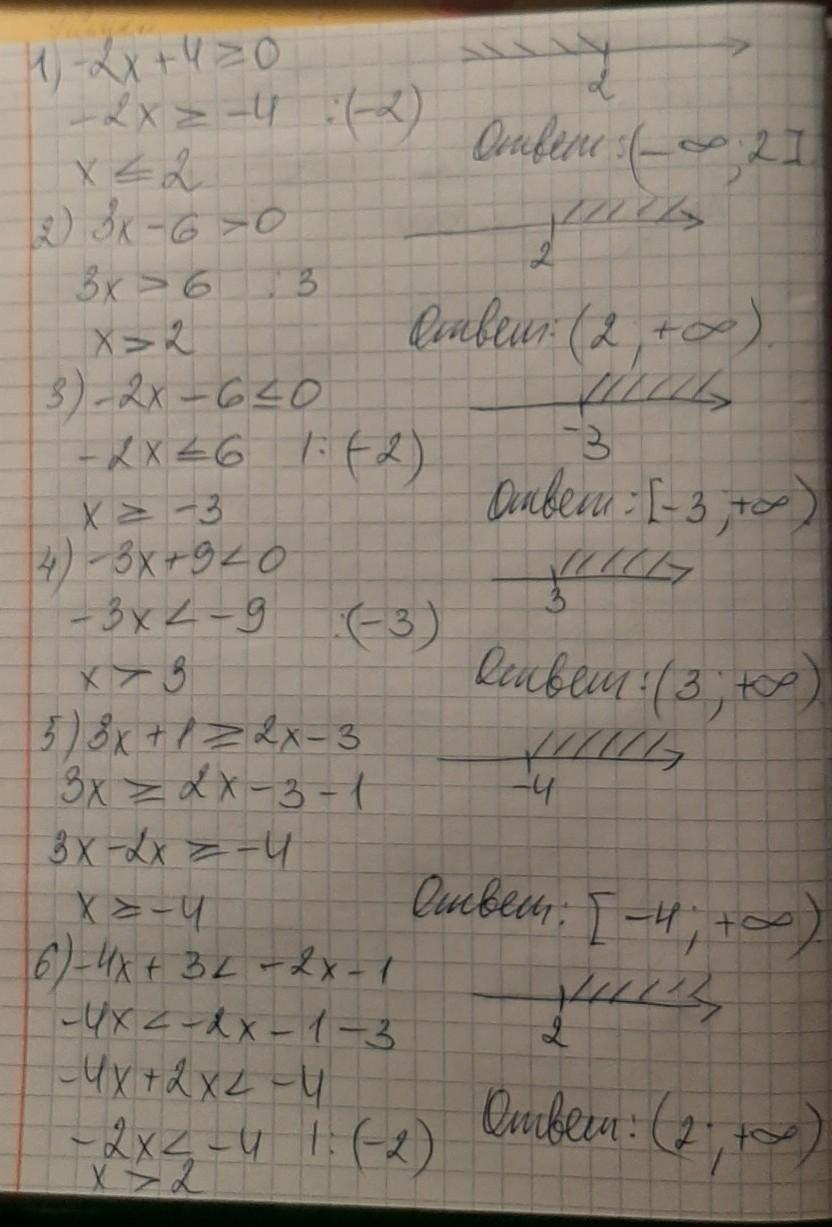 1) -2x+4≥0
-2x ≥ -4 :(-2)
x ≤ 2
2
Ответ: (-∞; 2]
2) 3x-6 >0
3x > 6 :3
x > 2
2
Ответ: (2; +∞).
3) -2x-6≤0
-2x ≤6 |: (-2)
x ≥ -3
-3
Ответ: [-3; +∞)
4) -3x+9<0
-3x < -9 :(-3)
x > 3
3
Ответ: (3; +∞)
5) 3x+1≥2x-3
3x ≥ 2x-3-1
3x-2x ≥ -4
x ≥ -4
-4
Ответ: [-4; +∞)
6) -4x+3< -2x-1
-4x<-2x-1-3
-4x+2x< -4
-2x< -4 |: (-2)
x > 2
2
Ответ: (2; +∞)